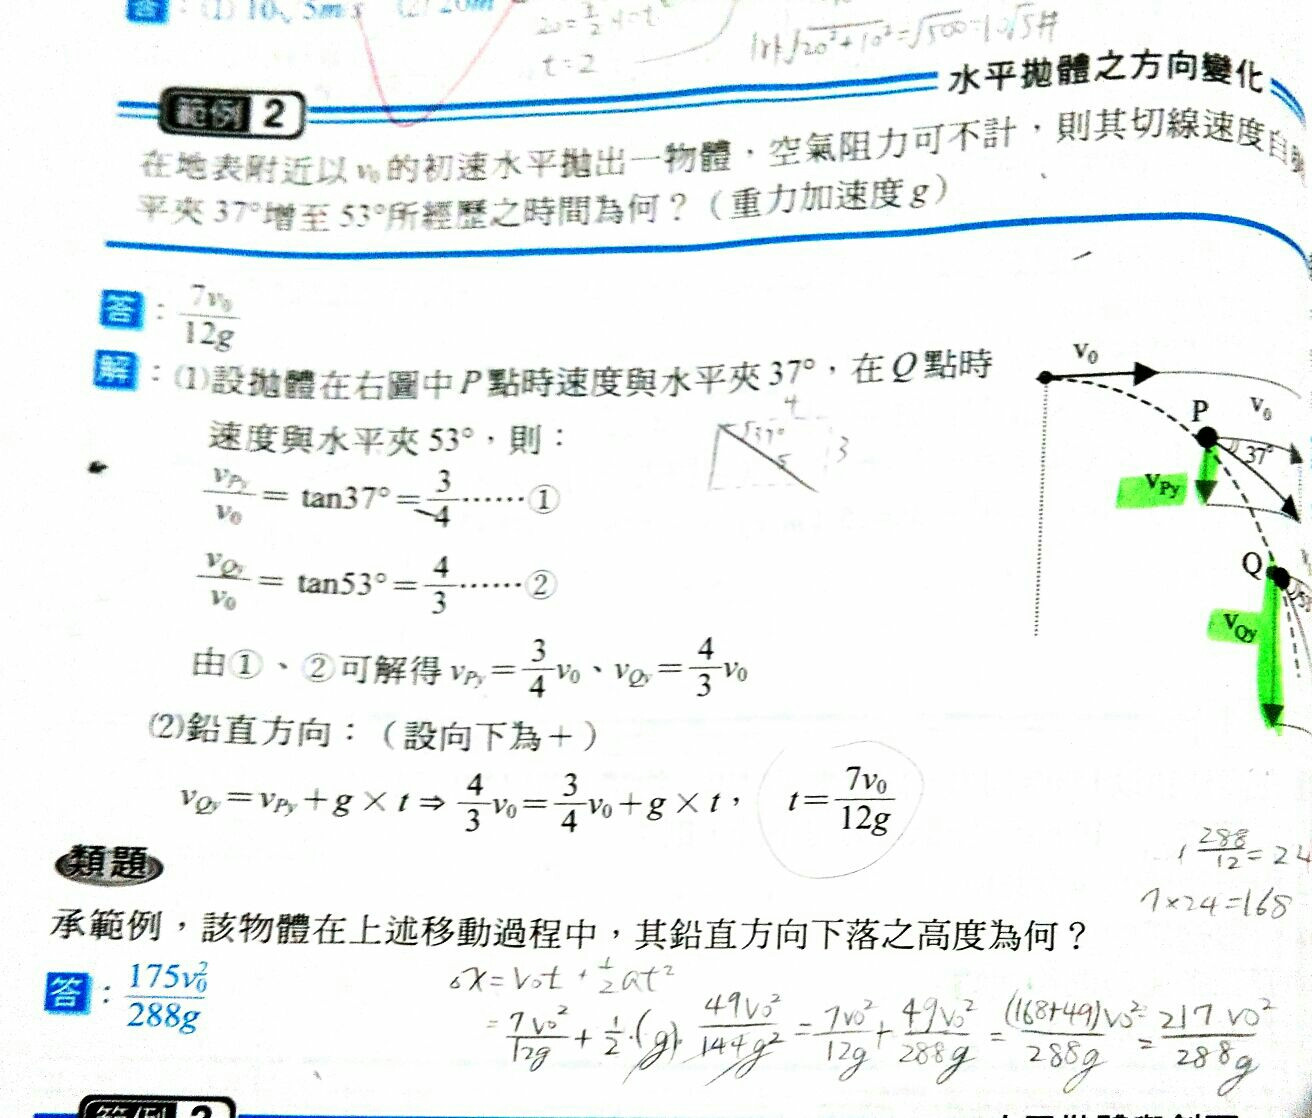 答：(1) 10、5m/s (2) 20m
t=2
√20²+10²=√500=10√5#
水平拋體之方向變化
範例 2
在地表附近以 v₀ 的初速水平拋出一物體，空氣阻力可不計，則其切線速度自
平夾 37°增至 53°所經歷之時間為何？（重力加速度 g）
答：7v₀/12g
解：(1)設拋體在右圖中 P 點時速度與水平夾 37°，在 Q 點時
速度與水平夾 53°，則：
v_Py/v₀ = tan37° = 3/4……①
v_Qy/v₀ = tan53° = 4/3……②
由①、②可解得 v_Py = 3/4 v₀、v_Qy = 4/3 v₀
(2)鉛直方向：（設向下為＋）
v_Qy = v_Py + g × t ⇒ 4/3 v₀ = 3/4 v₀ + g × t， t = 7v₀/12g
4
37°
5
3
v₀
P
v₀
37°
v_Py
Q
v_Qy
類題
承範例，該物體在上述移動過程中，其鉛直方向下落之高度為何？
答：175v₀²/288g
288/12=24
7×24=168
△x = v₀t + 1/2 at²
= 7v₀²/12g + 1/2·(g)·49v₀²/144g² = 7v₀²/12g + 49v₀²/288g = (168+49)v₀²/288g = 217v₀²/288g